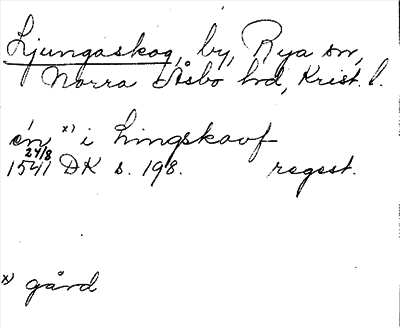 Ljungaskog, by, Rya sn,
Norra Åsbo hd, Krist. l.
én x) i Lingskaouf
24/8
1541 DK s. 198. regest.
x) gård